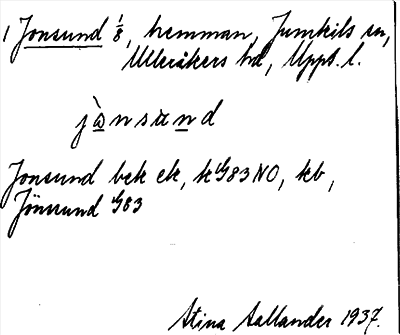 1 Jonsund 1/8, hemman, Jumkils sn,
Ulleråkers hd, Upps. l.
jὰnsὰnd
Jonsund bek ek, k G83 NO, kb,
Jönsund G83
Stina Aallander 1937.